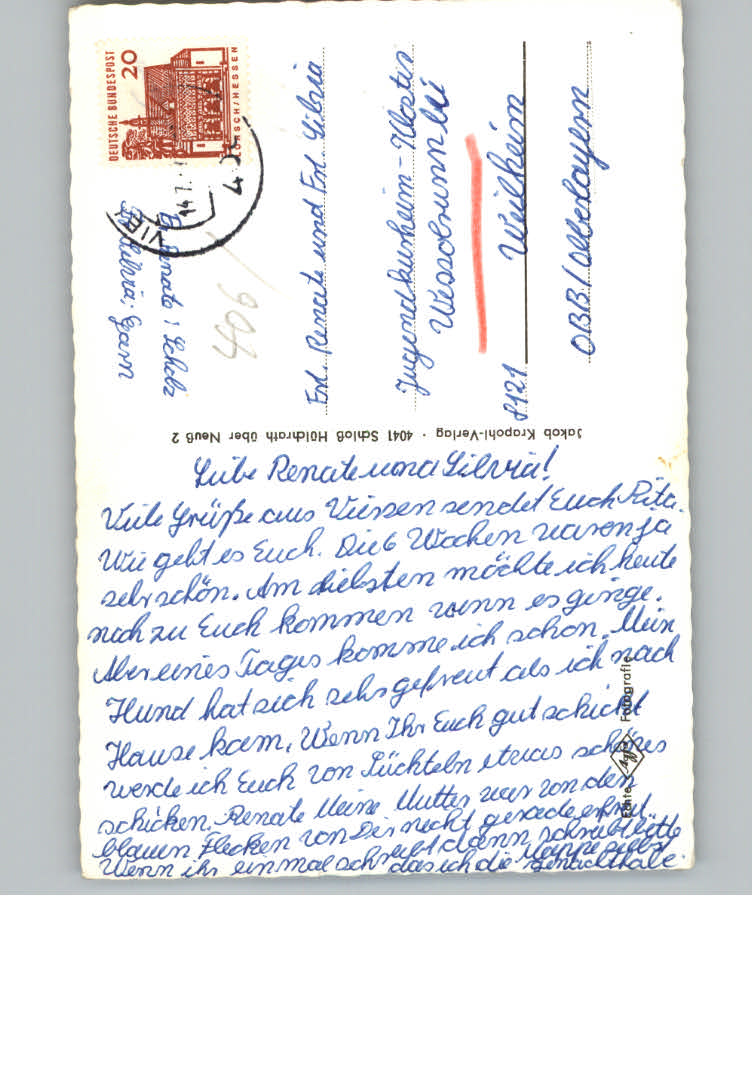 DEUTSCHE BUNDESPOST
20
LORSCH/HESSEN
VIER
14.7.
406
Renate Scholz
Silvia. Garn
Frl. Renate und Frl. Silvia
Jugendkurheim-Kloster
Wessobrunn bei
8121 Weilheim
OBB/Oberbayern
Jakob Krapohl-Verlag · 4041 Schloß Hülchrath über Neuß 2
Liebe Renate und Silvia!
Viele Grüße aus Viersen sendet Euch Rita.
Wie geht es Euch. Die 6 Wochen waren ja
sehr schön. Am liebsten möchte ich heute
noch zu Euch kommen wenn es ginge.
Aber eines Tages komme ich schon. Mein
Hund hat sich sehr gefreut als ich nach
Hause kam. Wenn Ihr Euch gut schickt
werde ich Euch von Süchteln etwas schönes
schicken. Renate Meine Mutter war von den
blauen Flecken von Dir nicht gerade erfreut
Wenn ihr einmal schreibt dann schreibt bitte
das ich die Mappe selbst gemacht habe.
Echte Agfa Fotografie